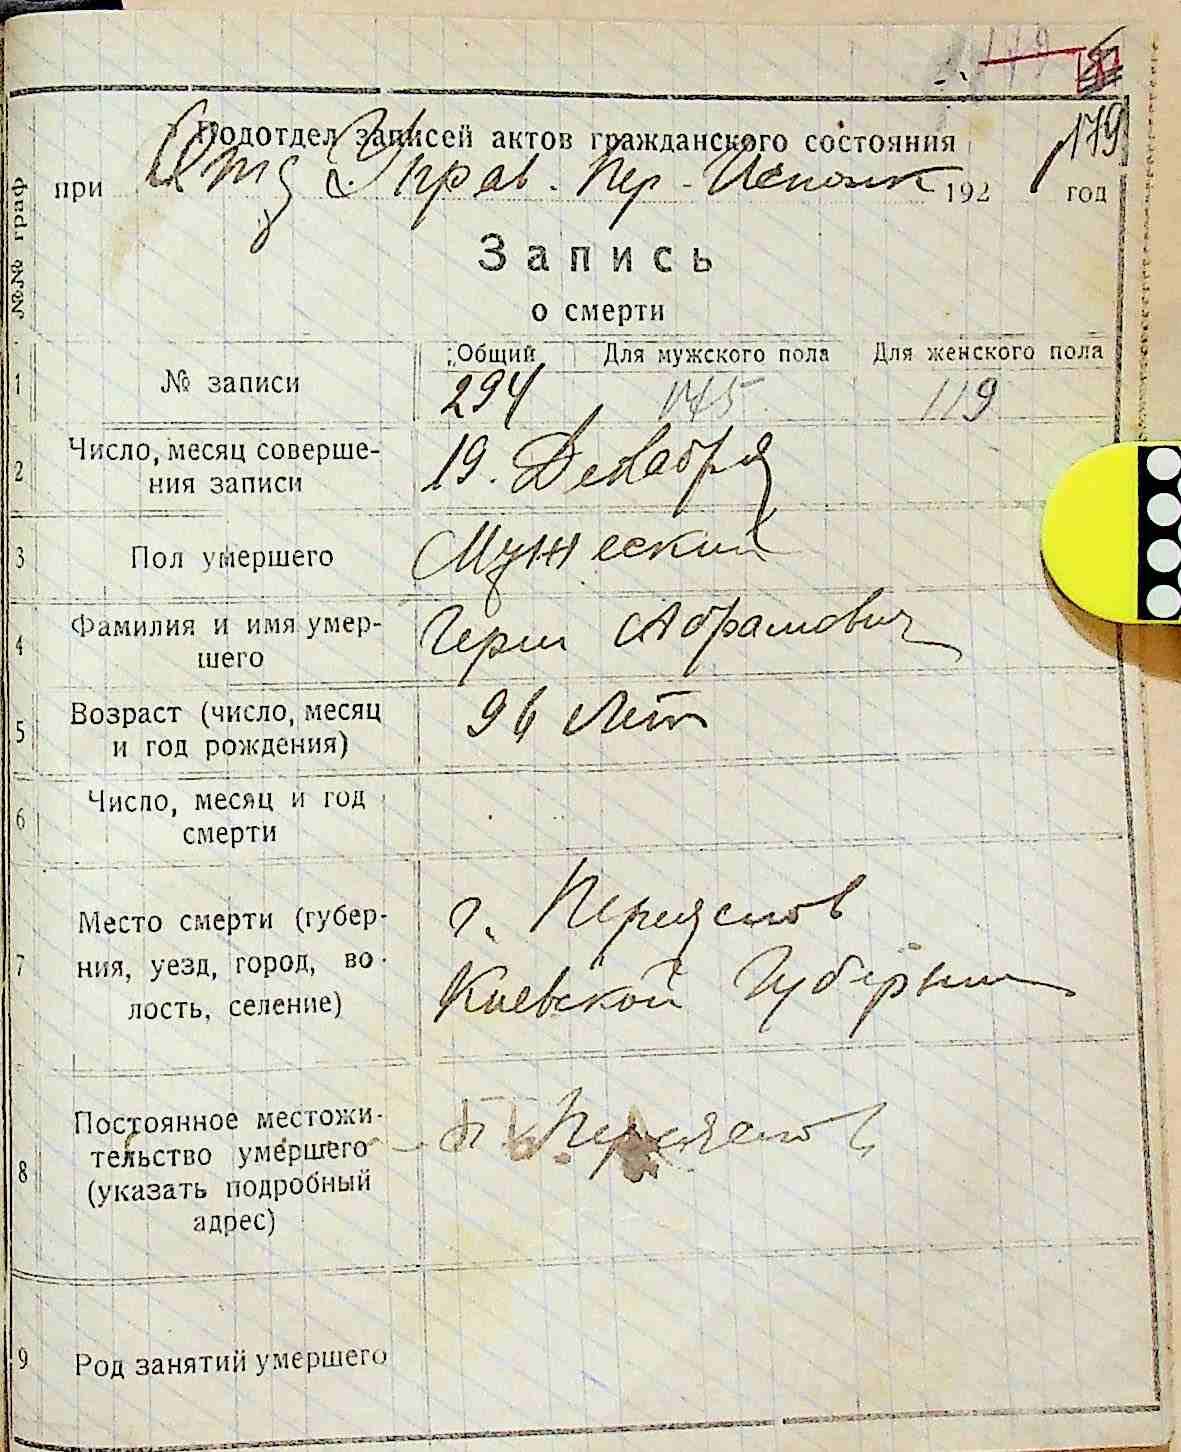 179
Подотдел записей актов гражданского состояния
при Отд Управ. Пер-Исполк 192 год
Запись
о смерти
№№ граф
Общий Для мужского пола Для женского пола
1 № записи 294 175 119
2 Число, месяц соверше-
ния записи 19. Декабря
3 Пол умершего Мужеский
4 Фамилия и имя умер-
шего Герш Абрамович
5 Возраст (число, месяц
и год рождения) 96 Лет
6 Число, месяц и год
смерти
7 Место смерти (губер-
ния, уезд, город, во-
лость, селение)
г. Переяслов
Киевской Губернии
8 Постоянное местожи-
тельство умершего
(указать подробный
адрес)
Переяслов
9 Род занятий умершего